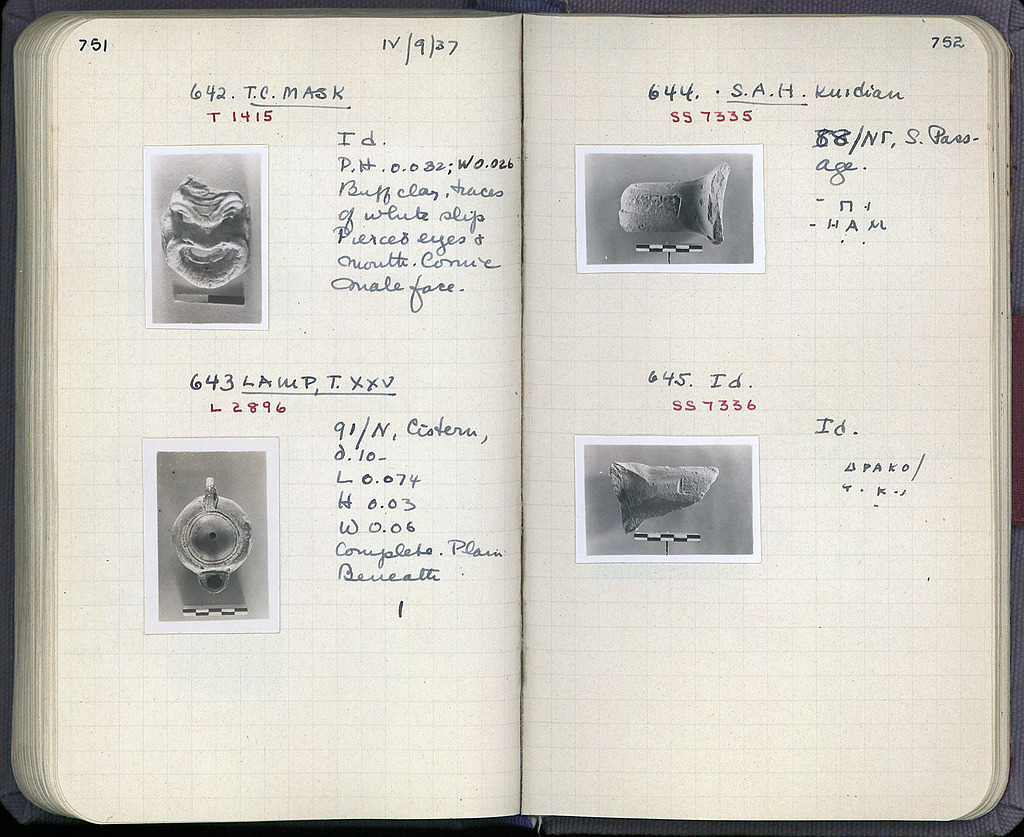 751
IV/9/37
642. T.C. MASK
T 1415
Id.
P.H. 0.032; W 0.026
Buff clay, traces
of white slip
Pierced eyes &
mouth. Comic
male face.
643 LAMP, T. XXV
L 2896
91/N, Cistern,
d. 10-
L 0.074
H 0.03
W 0.06
Complete. Plain
Beneath
1
752
644. S.A.H. Knidian
SS 7335
/ΝΓ, S. Pass-
age.
- Π Ι
- Η Α Μ
645. Id.
SS 7336
Id.
ΔΡΑΚΟ/
Τ . Κ . .